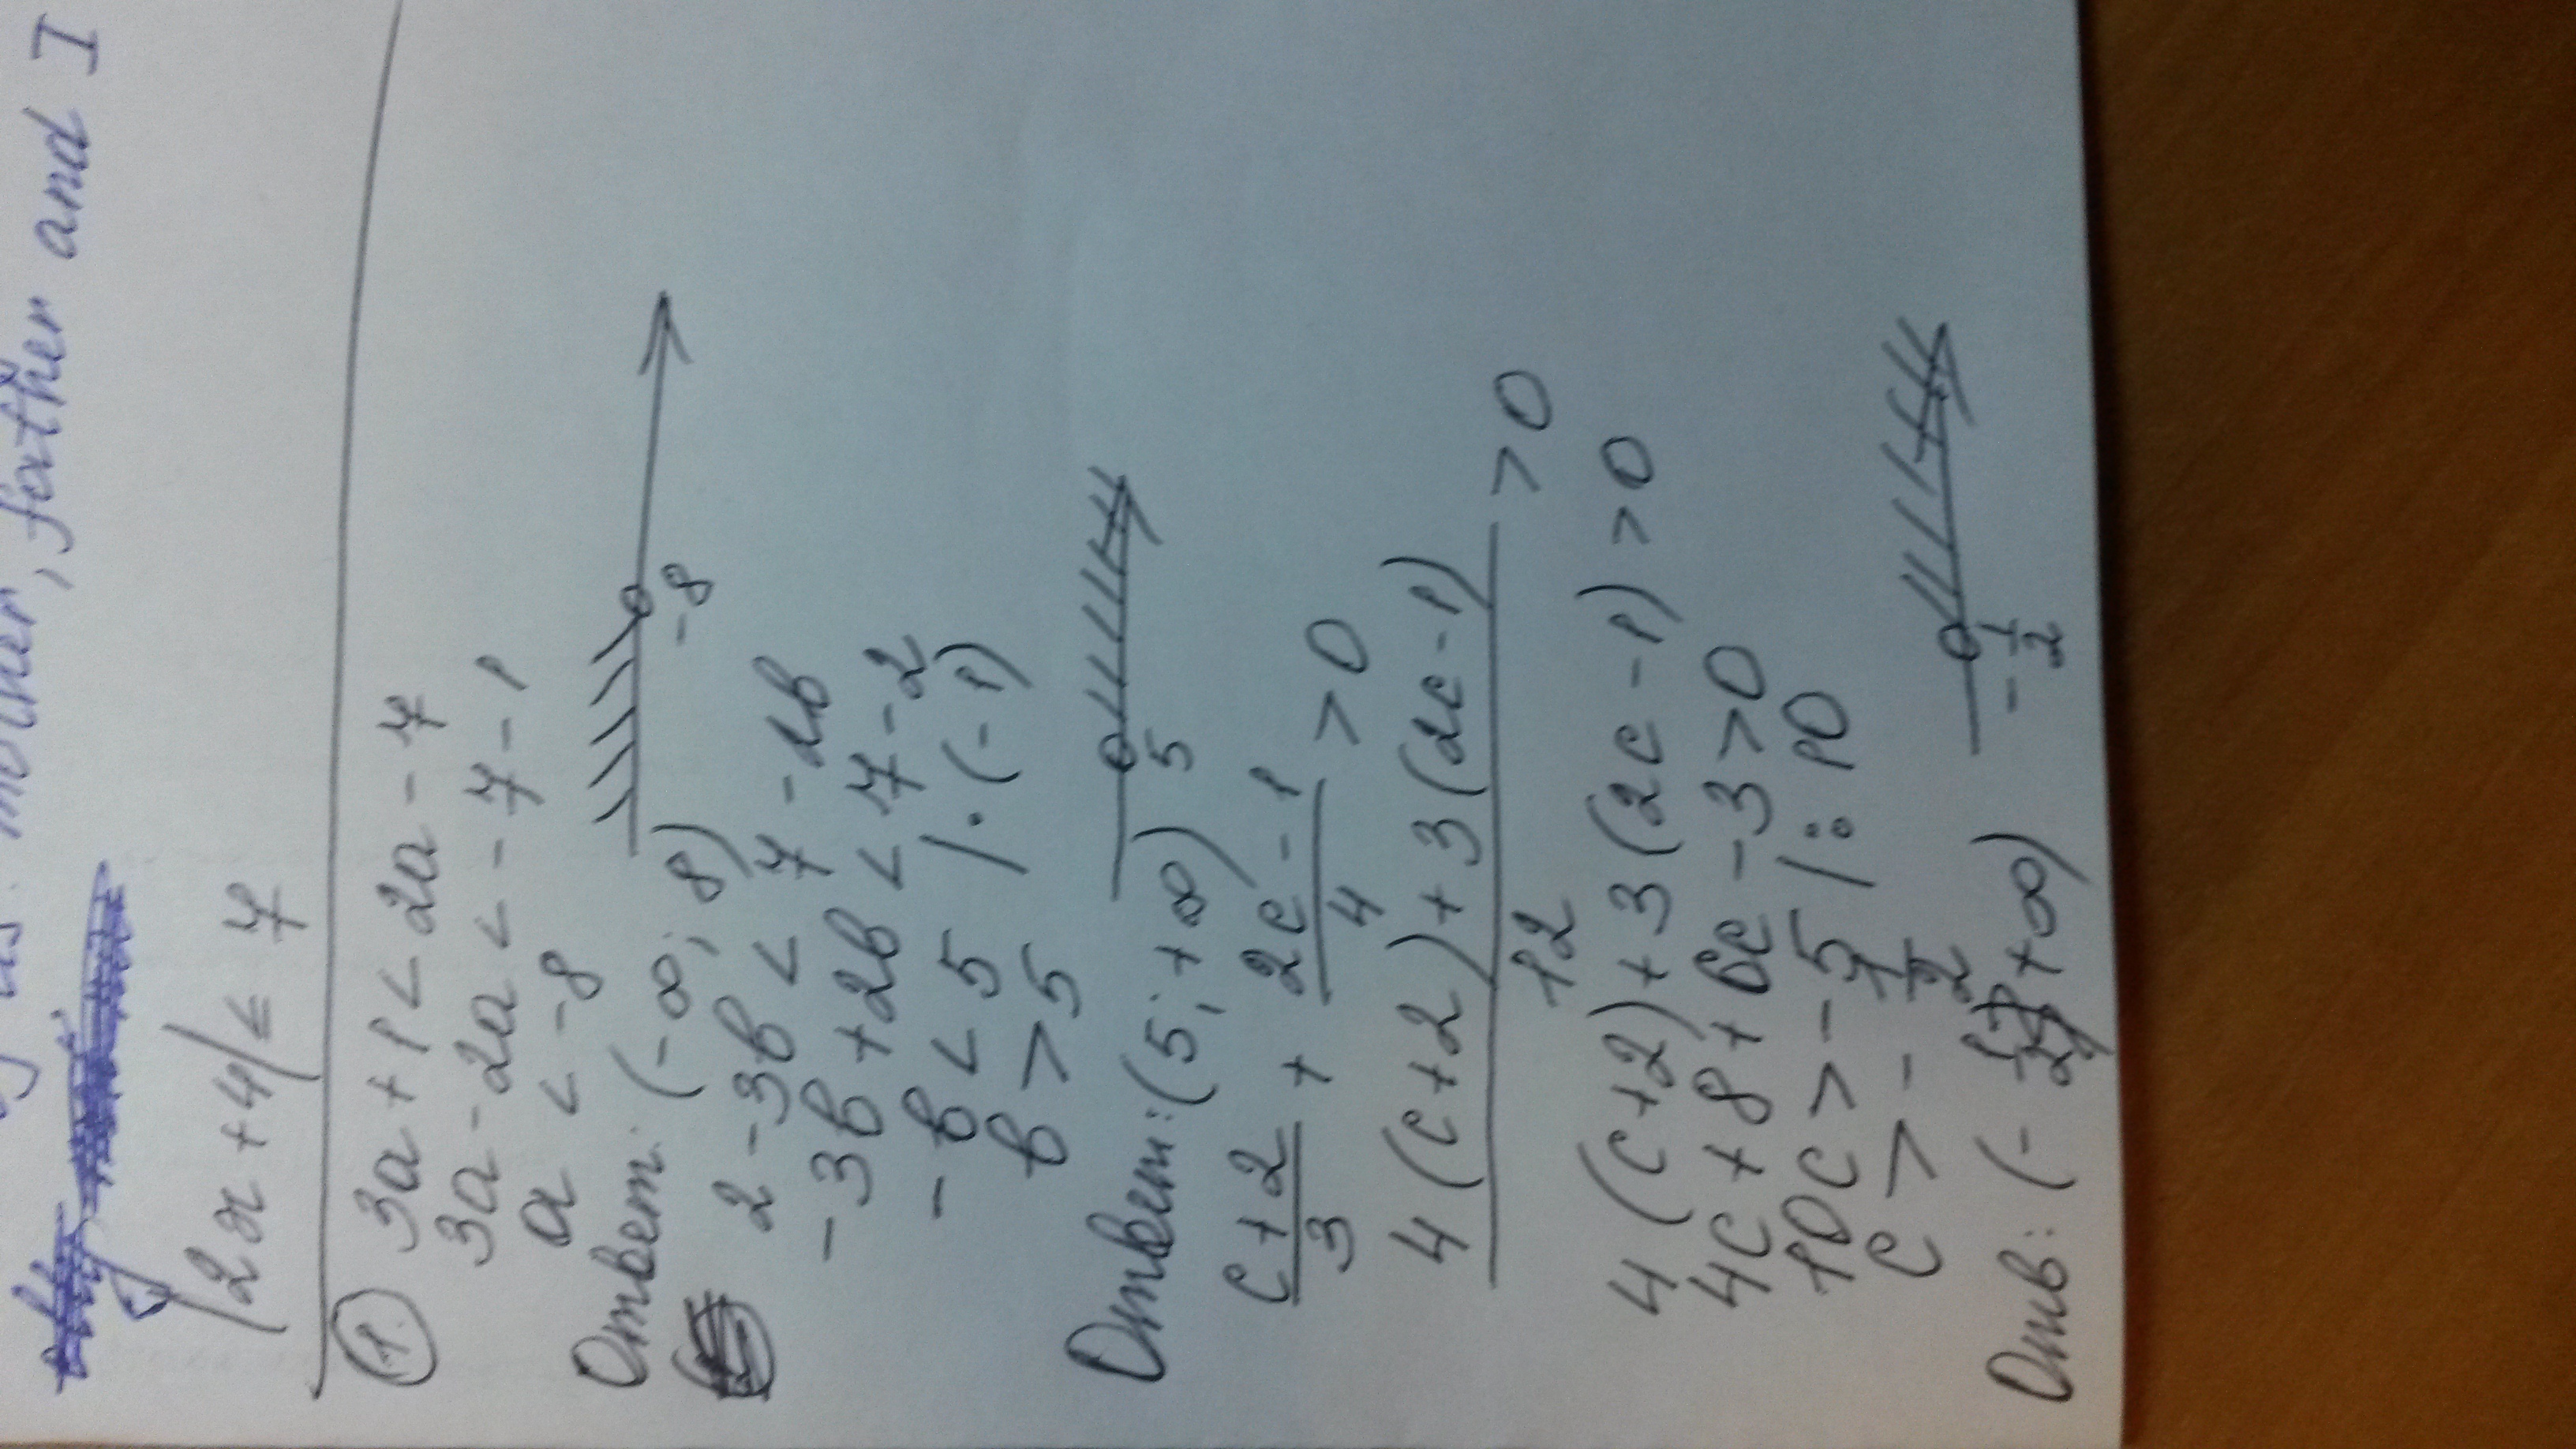 mother, father and I
|2x+4|≤ 7
1. 3a+1<2a-7
3a-2a<-7-1
a<-8
-8
Ответ: (-∞; 8)
2-3b<7-2b
-3b+2b<7-2
-b<5 | · (-1)
b>5
5
Ответ: (5; +∞)
c+2/3 + 2c-1/4 >0
4(c+2)+3(2c-1)/12 >0
4(c+2)+3(2c-1)>0
4c+8+6c-3>0
10c>-5 | : 10
c>-1/2
-1/2
Отв: (- +∞)